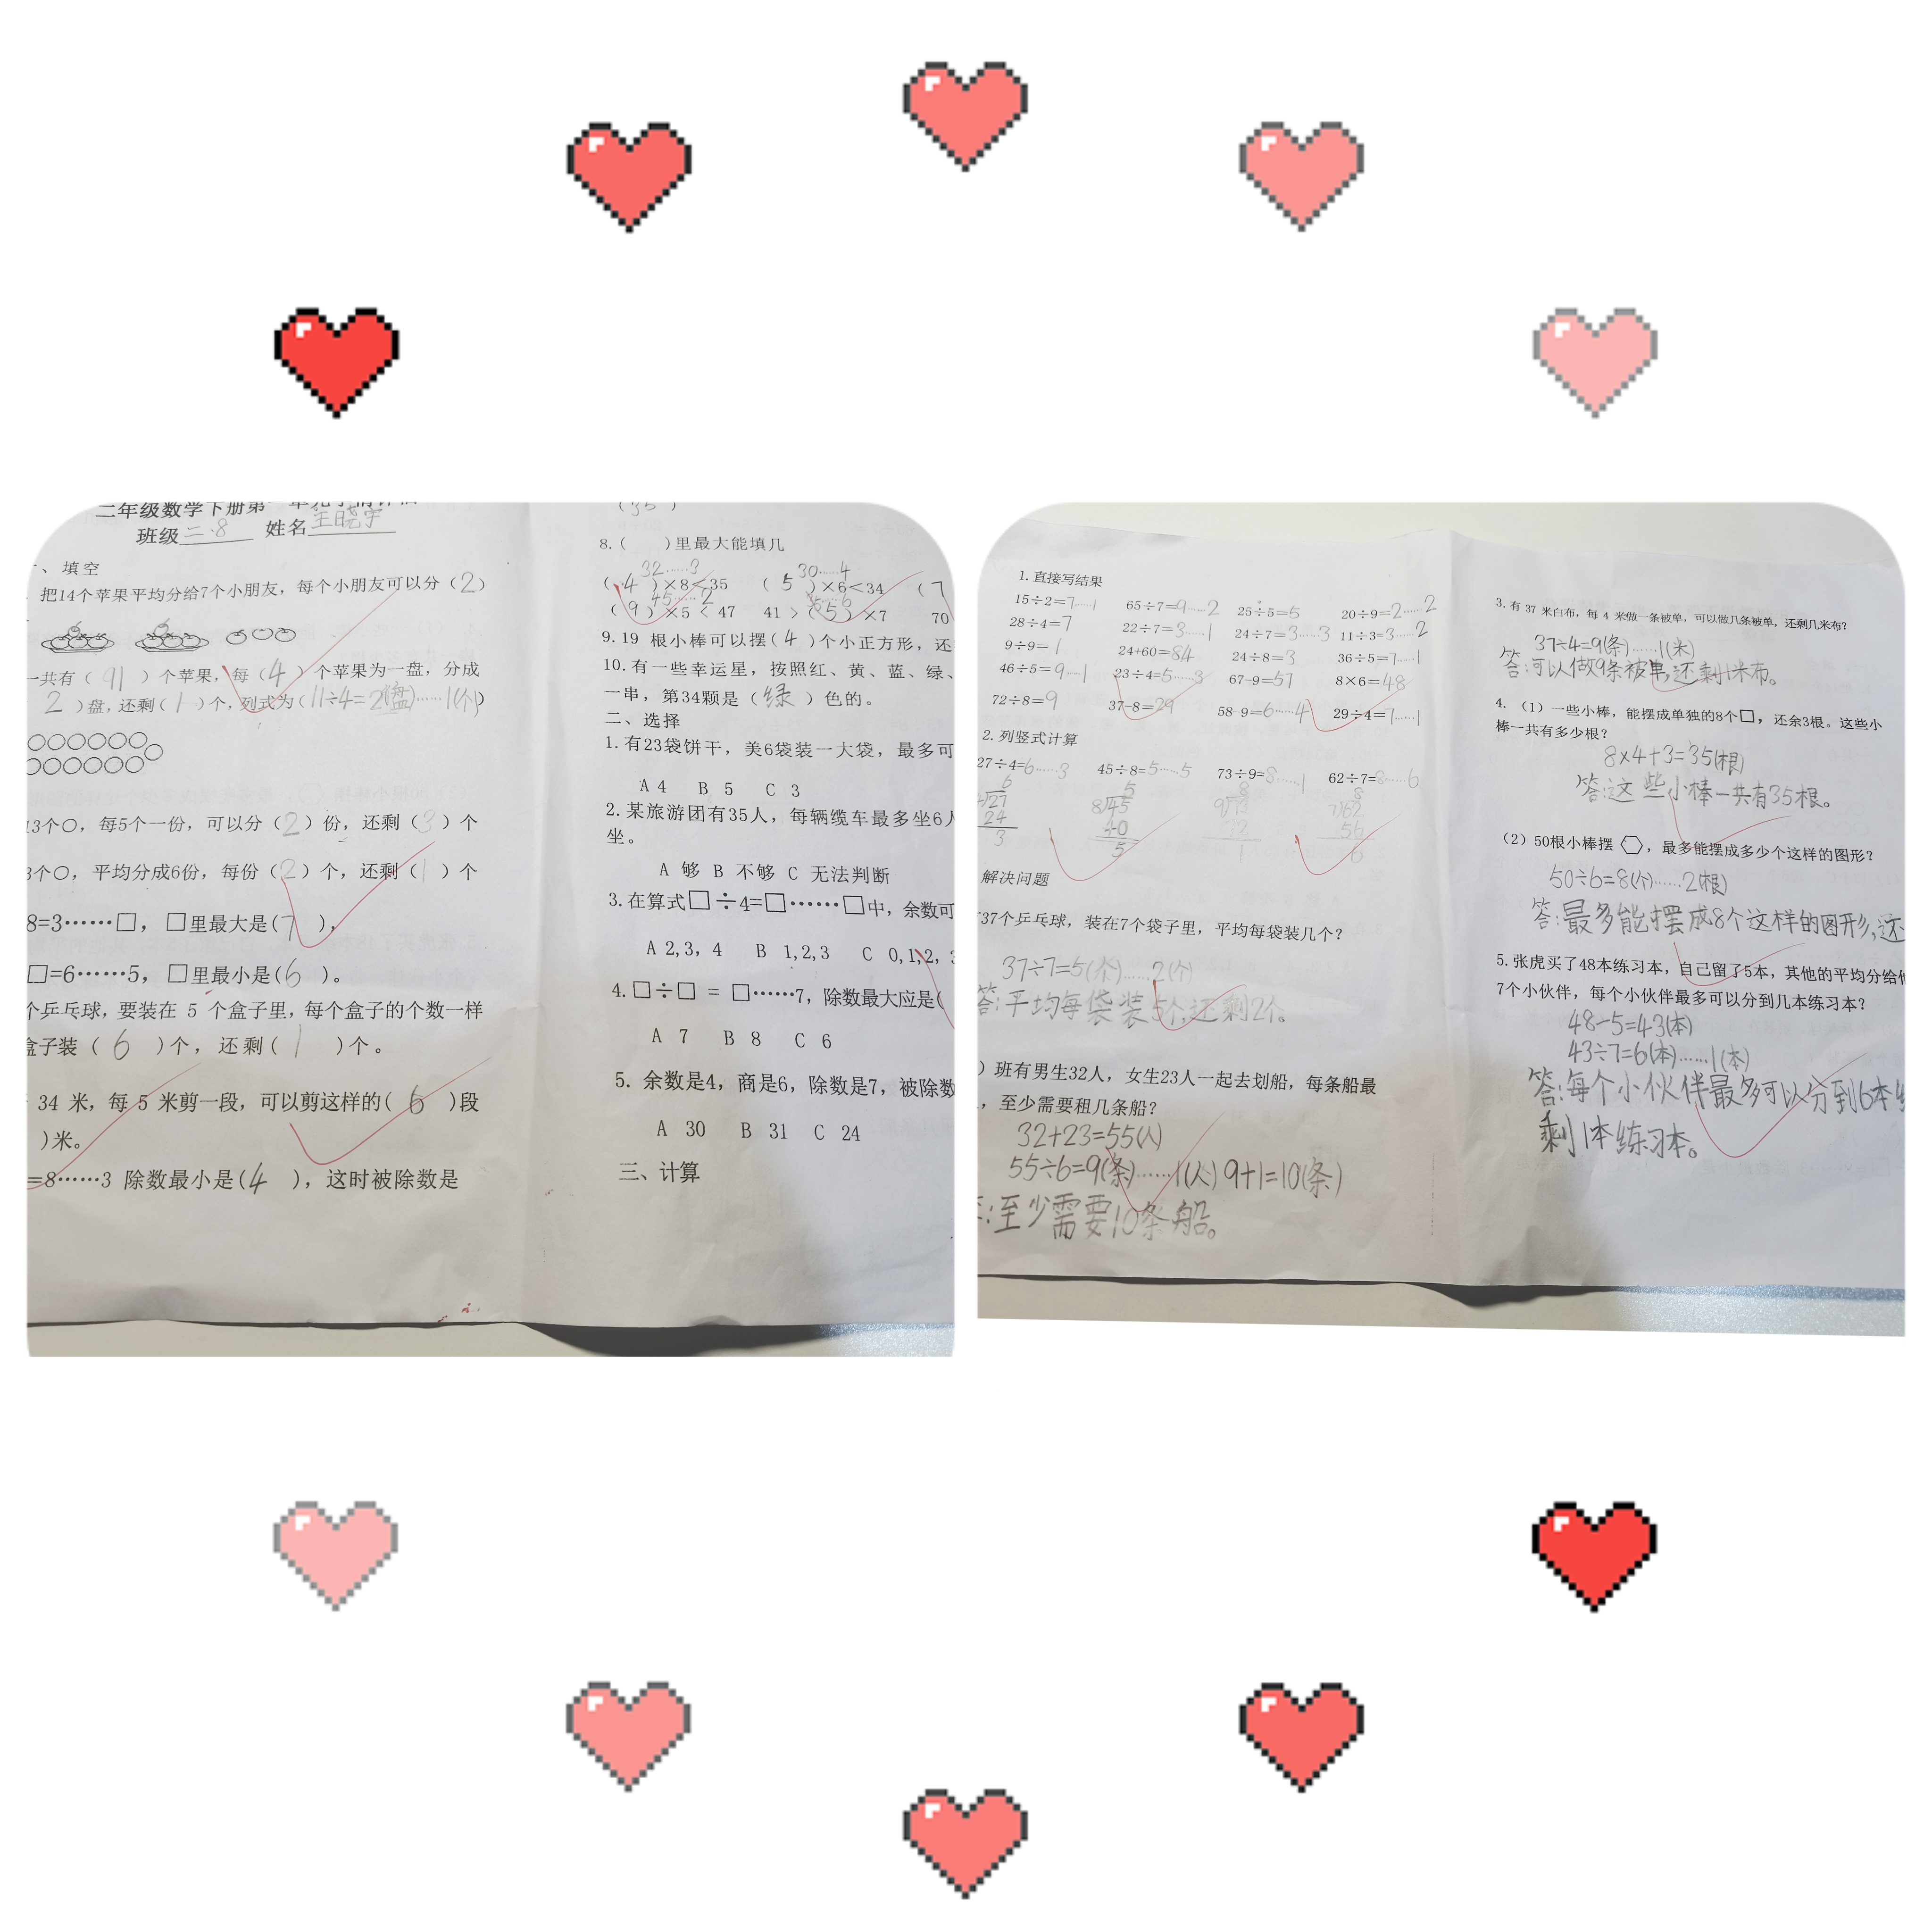 二年级数学下册第一单元学情评估
班级二.8 姓名王晓宇
一、填空
把14个苹果平均分给7个小朋友，每个小朋友可以分（2）
一共有（11）个苹果，每（4）个苹果为一盘，分成
2）盘，还剩（1）个，列式为（11÷4=2(盘)……1(个)）
13个○，每5个一份，可以分（2）份，还剩（3）个
3个○，平均分成6份，每份（2）个，还剩（1）个
8=3……□，□里最大是(7)，
□=6……5，□里最小是(6)。
个乒乓球，要装在 5 个盒子里，每个盒子的个数一样
盒子装（6）个，还剩（1）个。
34 米，每 5 米剪一段，可以剪这样的(6)段
)米。
=8……3 除数最小是(4)，这时被除数是
(35)
8.（ ）里最大能填几
32……3 30……4
(4)×8<35 (5)×6<34 (7
45……2
(9)×5<47 41>(5)×7 70
9.19 根小棒可以摆(4)个小正方形，还
10.有一些幸运星，按照红、黄、蓝、绿、
一串，第34颗是（绿）色的。
二、选择
1.有23袋饼干，美6袋装一大袋，最多可
A 4 B 5 C 3
2.某旅游团有35人，每辆缆车最多坐6人
坐。
A 够 B 不够 C 无法判断
3.在算式□÷4=□……□中，余数可
A 2,3，4 B 1,2,3 C 0,1,2，3
4.□÷□ = □……7，除数最大应是(
A 7 B 8 C 6
5. 余数是4，商是6，除数是7，被除数
A 30 B 31 C 24
三、计算
1.直接写结果
15÷2=7……1 65÷7=9……2 25÷5=5 20÷9=2……2
28÷4=7 22÷7=3……1 24÷7=3……3 11÷3=3……2
9÷9=1 24+60=84 24÷8=3 36÷5=7……1
46÷5=9……1 23÷4=5……3 67-9=57 8×6=48
72÷8=9 37-8=29 58-9=6……4 29÷4=7……1
2.列竖式计算
27÷4=6……3 45÷8=5……5 73÷9=8……1 62÷7=8……6
6 5 8 8
4)27 8)45 9)73 7)62
24 40 72 56
3 5 1 6
解决问题
37个乒乓球，装在7个袋子里，平均每袋装几个？
37÷7=5(个)……2(个)
答：平均每袋装5个，还剩2个。
）班有男生32人，女生23人一起去划船，每条船最
，至少需要租几条船？
32+23=55(人)
55÷6=9(条)……1(人) 9+1=10(条)
答：至少需要10条船。
3.有 37 米白布，每 4 米做一条被单，可以做几条被单，还剩几米布？
37÷4=9(条)……1(米)
答：可以做9条被单，还剩1米布。
4.（1）一些小棒，能摆成单独的8个□，还余3根。这些小
棒一共有多少根？
8×4+3=35(根)
答：这些小棒一共有35根。
（2）50根小棒摆，最多能摆成多少个这样的图形？
50÷6=8(个)……2(根)
答：最多能摆成8个这样的图形，还
5.张虎买了48本练习本，自己留了5本，其他的平均分给他
7个小伙伴，每个小伙伴最多可以分到几本练习本？
48-5=43(本)
43÷7=6(本)……1(本)
答：每个小伙伴最多可以分到6本练
剩1本练习本。